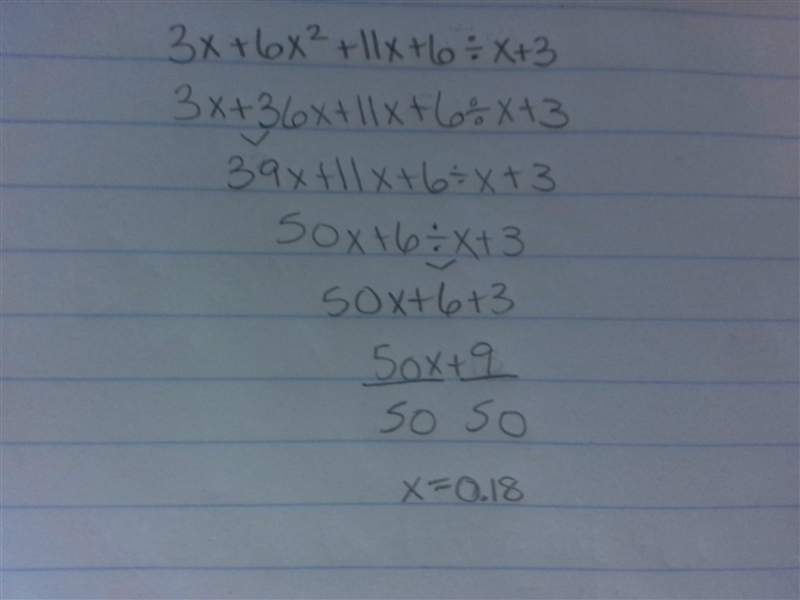 3x+6x²+11x+6÷x+3
3x+36x+11x+6÷x+3
39x+11x+6÷x+3
50x+6÷x+3
50x+6+3
50x+9
50 50
x=0.18